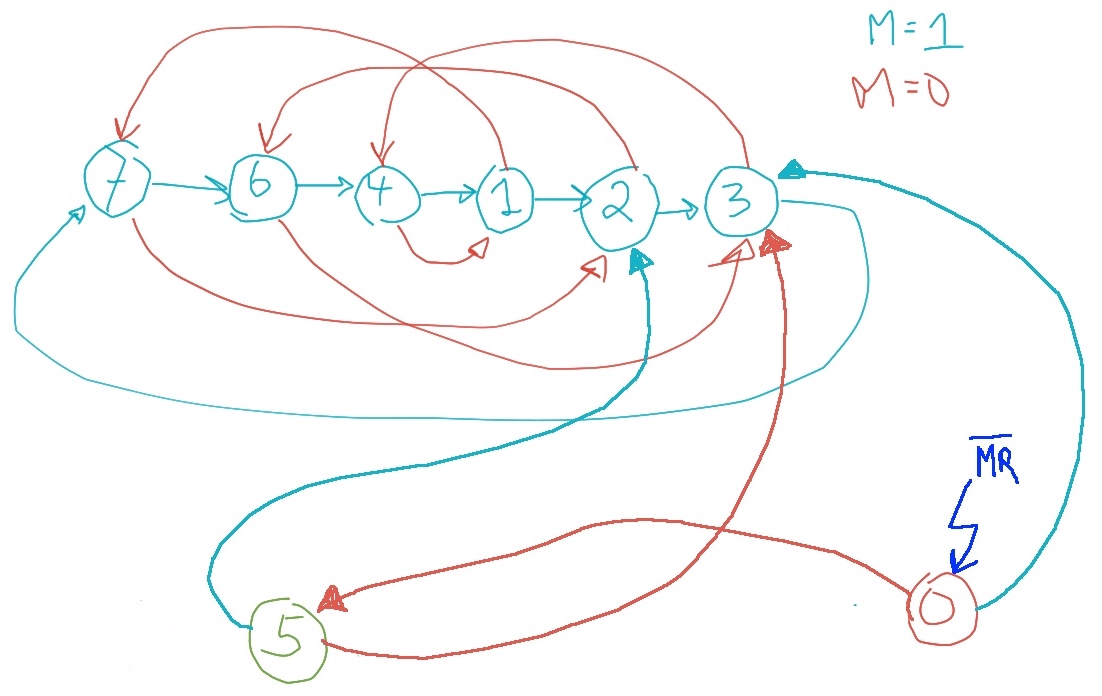 M=1
M=0
7 6 4 1 2 3
M̅R̅
5 0